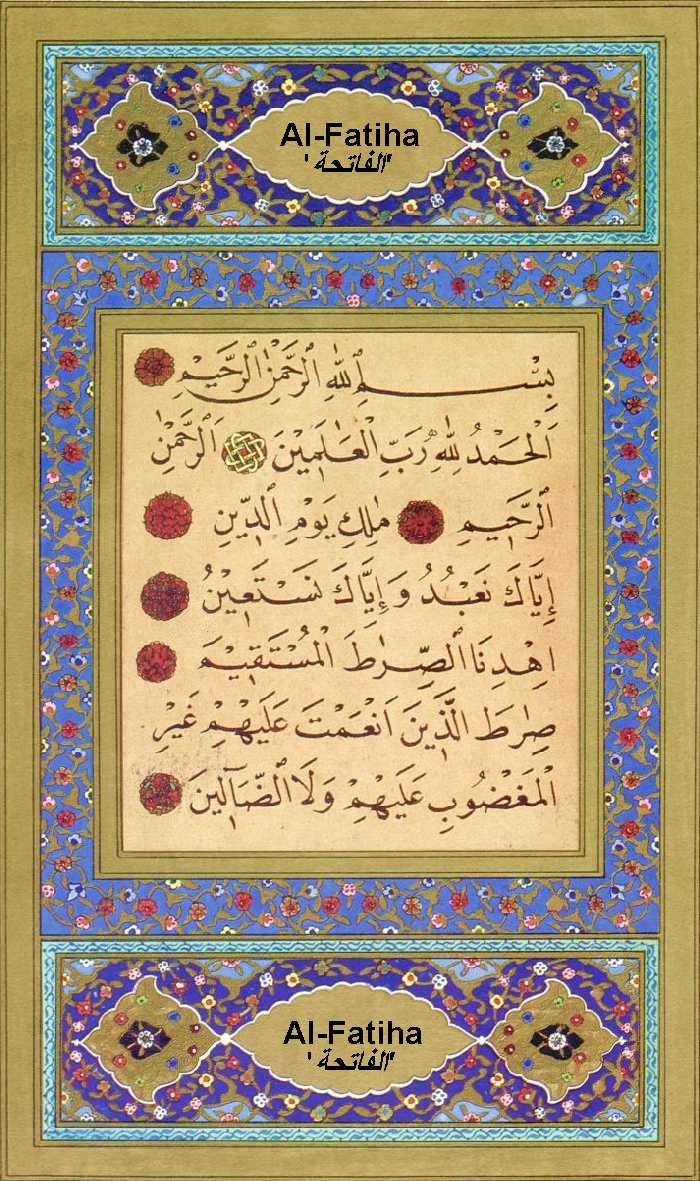 Al-Fatiha
'الفاتحة'
بِسْمِ ٱللّٰهِ ٱلرَّحْمٰنِ ٱلرَّحِيمِ
اَلْحَمْدُ لِلّٰهِ رَبِّ الْعَالَمِينَ اَلرَّحْمٰنِ
ٱلرَّحِيمِ مٰلِكِ يَوْمِ الدِّينِ
إِيَّاكَ نَعْبُدُ وَإِيَّاكَ نَسْتَعِينُ
اِهْدِنَا ٱلصِّرٰطَ الْمُسْتَقِيمَ
صِرٰطَ الَّذِينَ اَنْعَمْتَ عَلَيْهِمْ غَيْرِ
الْمَغْضُوبِ عَلَيْهِمْ وَلَا ٱلضَّآلِّينَ
Al-Fatiha
'الفاتحة'